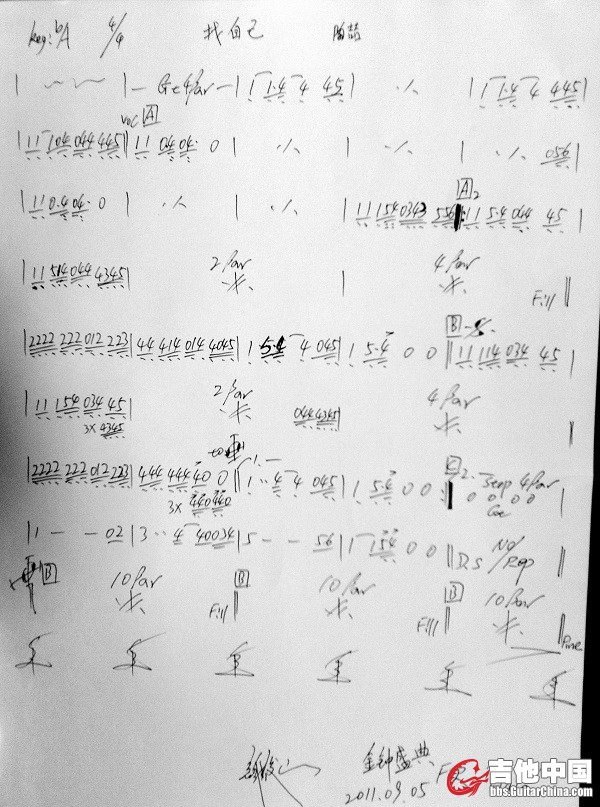 Key: bA 4/4 找自己 陶喆
| ~ ~ | — Gt 4 Bar — | 1 1·4 4 45 | ·/· | 1 1·4 4 445 |
voc A
| 11 104 044 445 | 11 04 04· 0 | ·/· | ·/· | ·/· 056 |
A2
| 11 0·4 04· 0 | ·/· | ·/· | 11 154 0343 556 | 11 5·4 044 45 |
| 11 514 044 4345 | 2 Bar | 4 Bar Fill
B
| 2222 222 012 223 | 44 414 014 4045 | 1 5·4 4 045 | 1 5·4 0 0 | 11 114 034 45 |
| 11 154 034 45 | 2 Bar 044 4345 | 4 Bar
3x 4345
to C2. Stop 4 Bar
| 2222 222 012 223 | 444 444 40 0 | 1·· 4 4 045 | 1 5·4 0 0 | 0 0 0 0 |
3x 440 440
| 1 - - 02 | 3·· 4 40034 | 5 - - 56 | 1 154 0 0 | D.S No/Rep
B 10 Bar Fill B Fill B 10 Bar Fine
金钟盛典
2011.09.05
吉他中国
bbs.GuitarChina.com